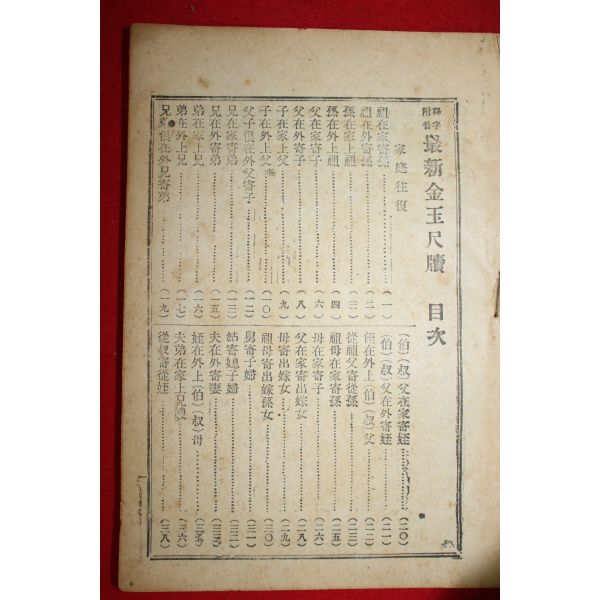 附音
最新金玉尺牘 目次
家庭往復
祖在家寄孫……(一)
祖在外寄孫……(二)
孫在家上祖……(三)
孫在外上祖……(四)
父在家寄子……(六)
父在外寄子……(八)
子在家上父……(九)
子在外上父……(一〇)
父子俱在外父寄子……(一二)
兄在家寄弟……(一三)
兄在外寄弟……(一五)
弟在家上兄……(一六)
弟在外上兄……(一七)
兄弟俱在外兄寄弟……(一九)
(伯)(叔)父在家寄姪……(二〇)
(伯)(叔)父在外寄姪……(二一)
姪在外上(伯)(叔)父……(二二)
從祖父寄從孫……(二三)
祖母在家寄孫……(二五)
母在家寄子……(二六)
父在家寄出嫁女……(二八)
母寄出嫁女……(二九)
祖母寄出嫁孫女……(三〇)
舅寄子婦……(三一)
姑寄媳子婦……(三二)
夫在外寄妻……(三三)
姪在外上(伯)(叔)母……(三五)
夫弟在家上兄嫂……(三六)
從叔寄從姪……(三八)